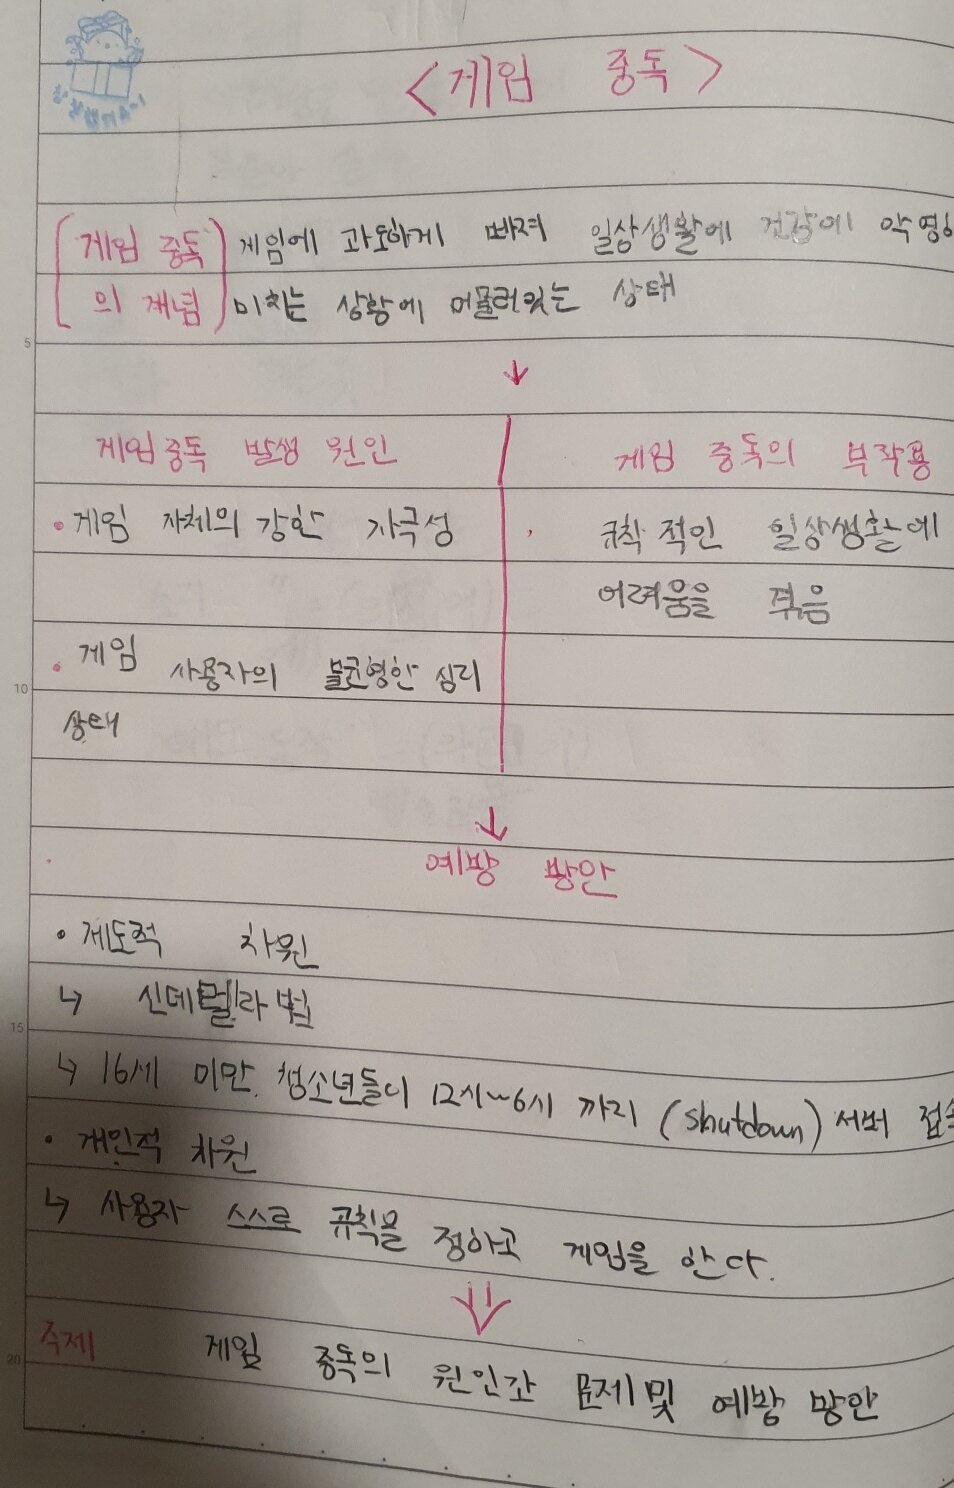 <게임 중독>
게임 중독 게임에 과도하게 빠져 일상생활에 건강에 악영
의 개념 미치는 상황에 머물러있는 상태
↓
게임중독 발생 원인
• 게임 자체의 강한 자극성
• 게임 사용자의 불균형한 심리
상태
게임 중독의 부작용
• 규칙적인 일상생활에
어려움을 겪음
↓
예방 방안
• 제도적 차원
↳ 신데렐라 법
↳ 16세 미만 청소년들이 12시~6시 까지 (shutdown) 서버 접속
• 개인적 차원
↳ 사용자 스스로 규칙을 정하고 게임을 한다.
⇓
주제 게임 중독의 원인과 문제 및 예방 방안
5
10
15
20